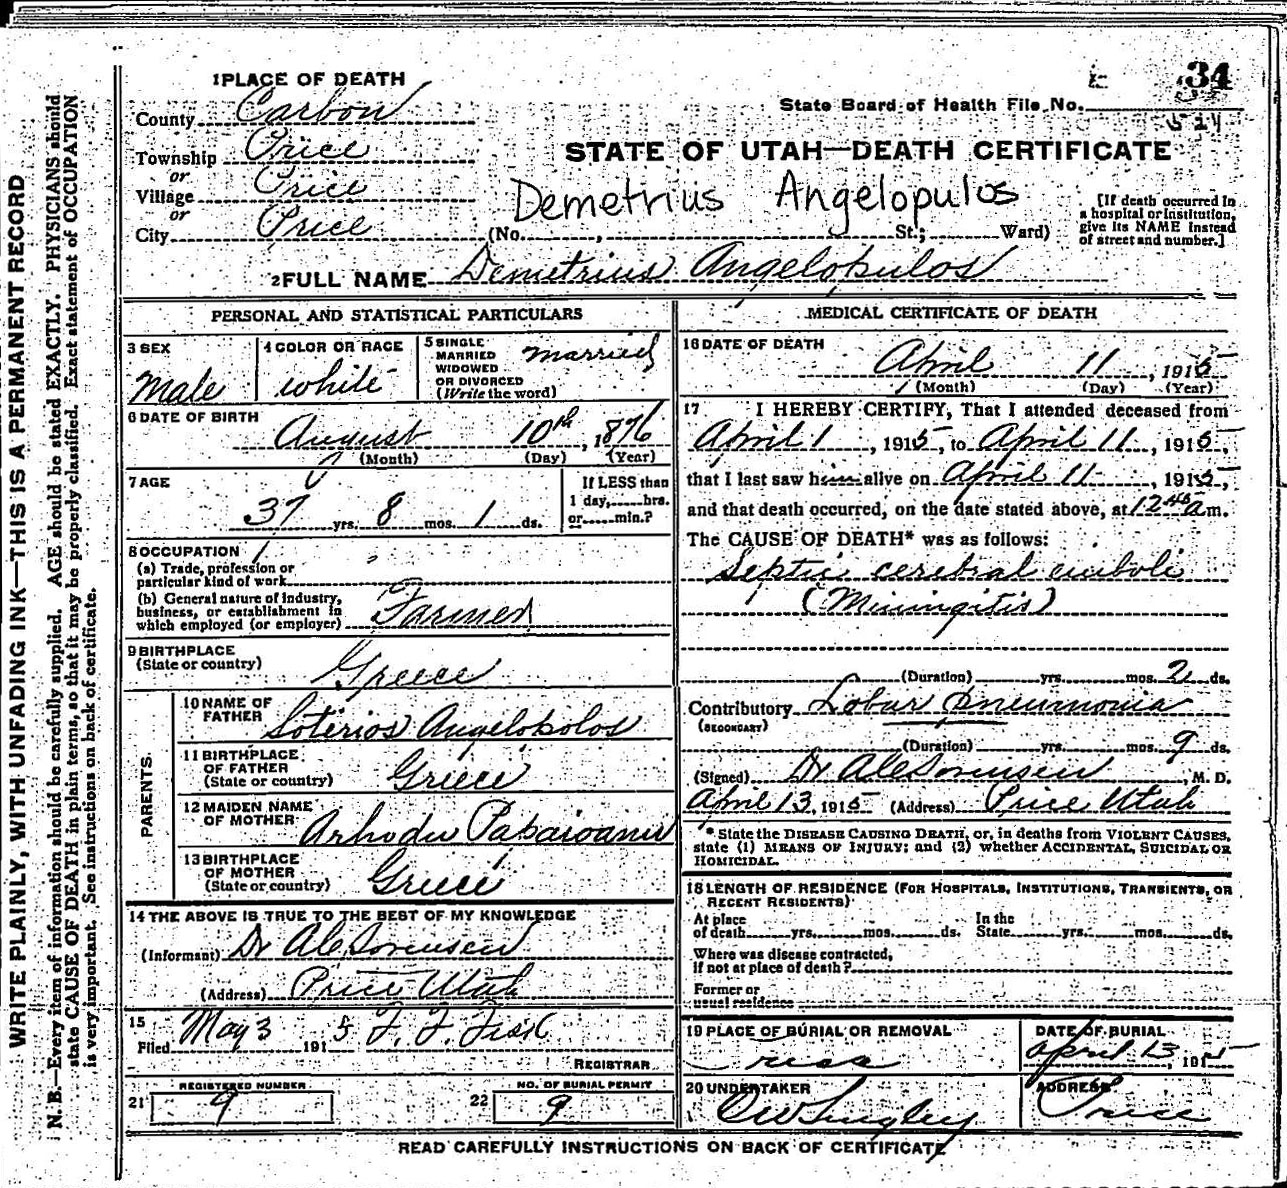 34
State Board of Health File No.
1 PLACE OF DEATH
County Carbon
Township Price
or
Village Price
or
City Price
STATE OF UTAH—DEATH CERTIFICATE
Demetrius Angelopulos
(No. , St.; Ward)
[If death occurred in
a hospital or institution,
give its NAME instead
of street and number.]
2 FULL NAME Demetrius Angelopulos
PERSONAL AND STATISTICAL PARTICULARS
3 SEX
Male
4 COLOR OR RACE
white
5 SINGLE
MARRIED
WIDOWED
OR DIVORCED
(Write the word)
married
6 DATE OF BIRTH
August 10th, 1876
(Month) (Day) (Year)
7 AGE
37 yrs. 8 mos. 1 ds.
If LESS than
1 day, hrs.
or min.?
8 OCCUPATION
(a) Trade, profession or
particular kind of work
(b) General nature of industry,
business, or establishment in
which employed (or employer) Farmer
9 BIRTHPLACE
(State or country) Greece
PARENTS.
10 NAME OF
FATHER Soterios Angelopolos
11 BIRTHPLACE
OF FATHER
(State or country) Greece
12 MAIDEN NAME
OF MOTHER
13 BIRTHPLACE
OF MOTHER
(State or country) Greece
14 THE ABOVE IS TRUE TO THE BEST OF MY KNOWLEDGE
(Informant) Dr Sorensen
(Address) Price Utah
15
Filed May 3 1915 F. F. Fisk
REGISTRAR
21 REGISTERED NUMBER
9
22 NO. OF BURIAL PERMIT
9
MEDICAL CERTIFICATE OF DEATH
16 DATE OF DEATH
April 11, 1915
(Month) (Day) (Year)
17 I HEREBY CERTIFY, That I attended deceased from
April 1, 1915, to April 11, 1915
that I last saw him alive on April 11, 1915,
and that death occurred, on the date stated above, at 12 45 a m.
The CAUSE OF DEATH* was as follows:
Septic cerebral emboli
(Miningitis)
(Duration) yrs. mos. 2 ds.
Contributory Lobar Pneumonia
(SECONDARY)
(Duration) yrs. mos. 9 ds.
(Signed) Dr Sorensen, M. D.
April 13, 1915 (Address) Price Utah
* State the DISEASE CAUSING DEATH, or, in deaths from VIOLENT CAUSES,
state (1) MEANS OF INJURY; and (2) whether ACCIDENTAL, SUICIDAL OR
HOMICIDAL.
18 LENGTH OF RESIDENCE (FOR HOSPITALS, INSTITUTIONS, TRANSIENTS, OR
RECENT RESIDENTS)
At place
of death yrs. mos. ds.
In the
State yrs. mos. ds.
Where was disease contracted,
if not at place of death?
Former or
usual residence
19 PLACE OF BURIAL OR REMOVAL
Price
DATE OF BURIAL
April 13, 1915
20 UNDERTAKER
ADDRESS
Price
READ CAREFULLY INSTRUCTIONS ON BACK OF CERTIFICATE
WRITE PLAINLY, WITH UNFADING INK—THIS IS A PERMANENT RECORD
N. B.—Every item of information should be carefully supplied. AGE should be stated EXACTLY. PHYSICIANS should
state CAUSE OF DEATH in plain terms, so that it may be properly classified. Exact statement of OCCUPATION
is very important. See instructions on back of certificate.